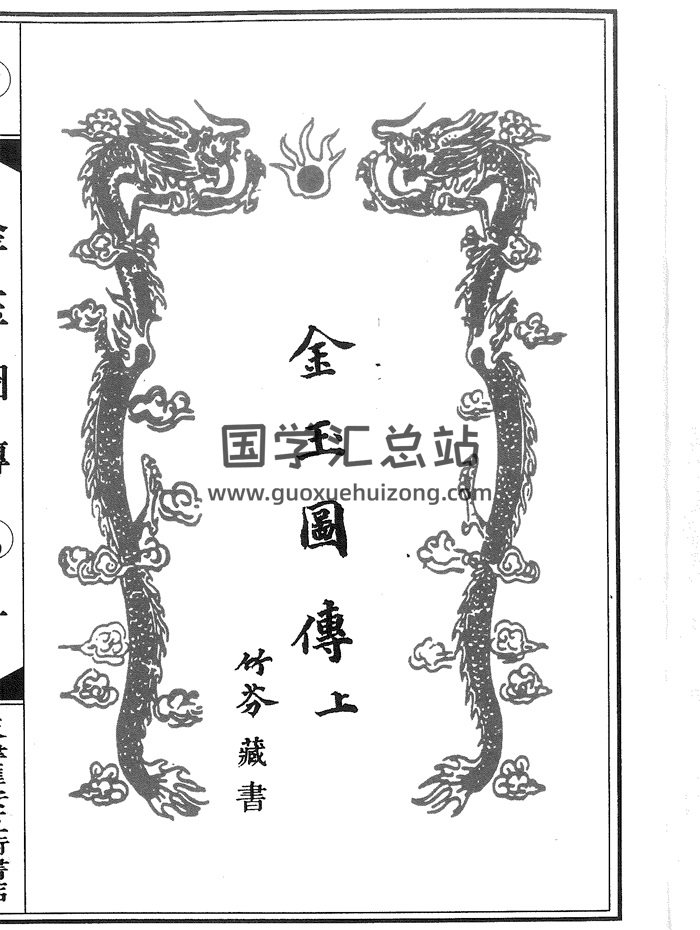 金玉圖傳上
竹芬藏書
国学汇总站
www.guoxuehuizong.com